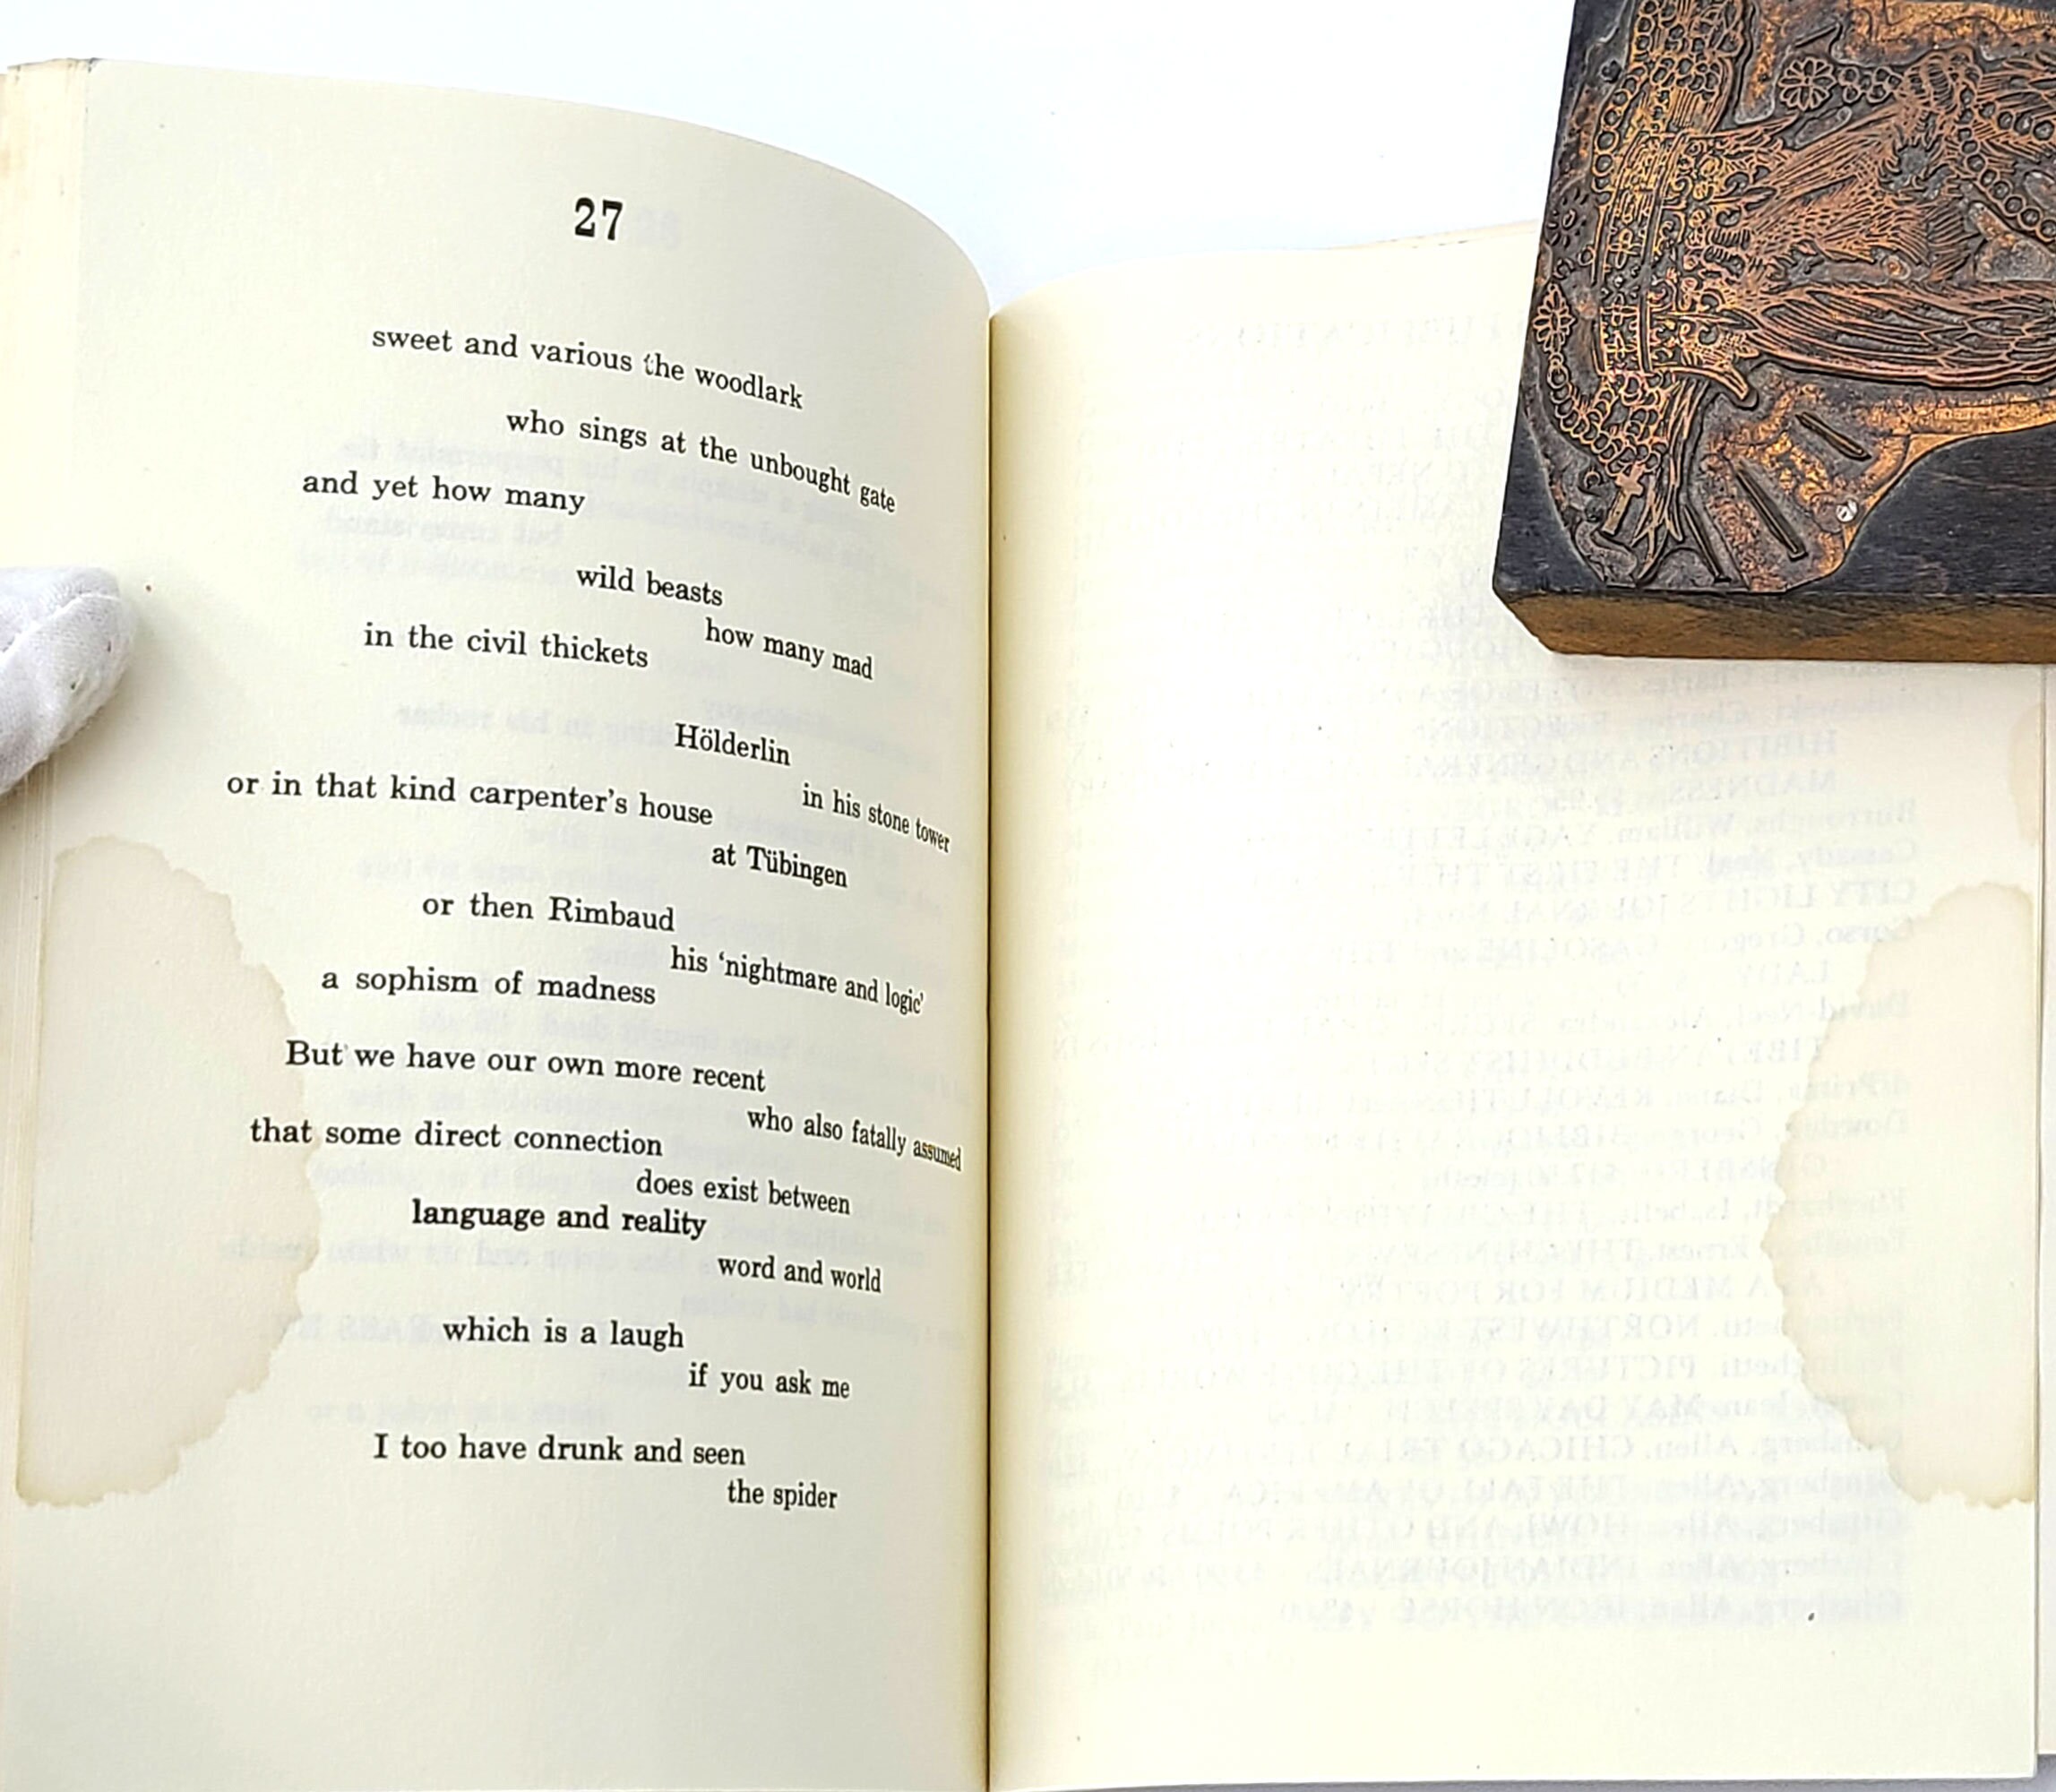 27
sweet and various the woodlark
who sings at the unbought gate
and yet how many
wild beasts
how many mad
in the civil thickets
Hölderlin
in his stone tower
or in that kind carpenter's house
at Tübingen
or then Rimbaud
his ‘nightmare and logic’
a sophism of madness
But we have our own more recent
who also fatally assumed
that some direct connection
does exist between
language and reality
word and world
which is a laugh
if you ask me
I too have drunk and seen
the spider